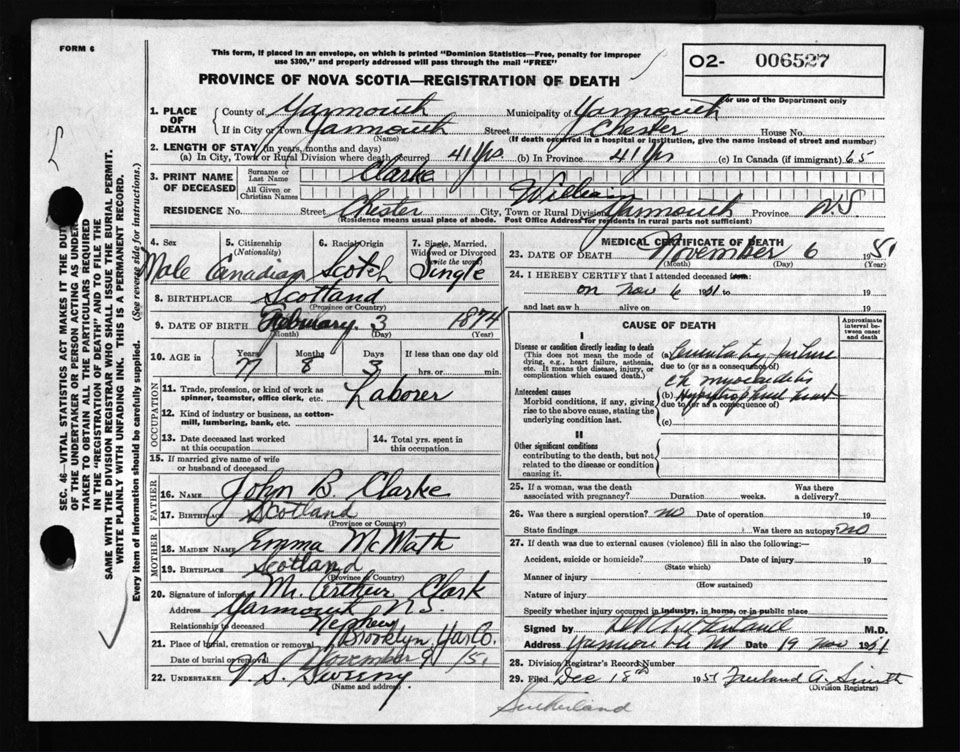 FORM 6
This form, if placed in an envelope, on which is printed "Dominion Statistics—Free, penalty for improper
use $300," and properly addressed will pass through the mail "FREE"
PROVINCE OF NOVA SCOTIA—REGISTRATION OF DEATH
O2- 006527
For use of the Department only
SEC. 46—VITAL STATISTICS ACT MAKES IT THE DUTY
OF THE UNDERTAKER OR PERSON ACTING AS UNDER-
TAKER TO OBTAIN ALL THE PARTICULARS REQUIRED
IN THE "REGISTRATION OF DEATH" AND TO FILE THE
SAME WITH THE DIVISION REGISTRAR WHO SHALL ISSUE THE BURIAL PERMIT.
WRITE PLAINLY WITH UNFADING INK. THIS IS A PERMANENT RECORD.
Every item of Information should be carefully supplied. (See reverse side for instructions.)
1. PLACE OF DEATH
County of Yarmouth Municipality of Yarmouth
If in City or Town Yarmouth Street Chester House No.
(Name) (If death occurred in a hospital or institution, give the name instead of street and number)
2. LENGTH OF STAY (in years, months and days)
(a) In City, Town or Rural Division where death occurred 41 Yrs. (b) In Province 41 Yrs (c) In Canada (if immigrant) 65
3. PRINT NAME OF DECEASED
Surname or Last Name Clarke
All Given or Christian Names William
RESIDENCE No. Street Chester City, Town or Rural Division Yarmouth Province N.S.
(Residence means usual place of abode. Post Office Address for residents in rural parts not sufficient)
4. Sex Male
5. Citizenship (Nationality) Canadian
6. Racial Origin Scotch
7. Single, Married, Widowed or Divorced (write the word) Single
8. BIRTHPLACE Scotland
(Province or Country)
9. DATE OF BIRTH February 3 1874
(Month) (Day) (Year)
10. AGE in Years 77 Months 8 Days 3 If less than one day old
hrs. or min.
OCCUPATION
11. Trade, profession, or kind of work as spinner, teamster, office clerk, etc. Laborer
12. Kind of industry or business, as cotton-mill, lumbering, bank, etc.
13. Date deceased last worked at this occupation
14. Total yrs. spent in this occupation
15. If married give name of wife or husband of deceased
FATHER
16. NAME John B. Clarke
17. BIRTHPLACE Scotland
(Province or Country)
MOTHER
18. MAIDEN NAME Emma McMath
19. BIRTHPLACE Scotland
(Province or Country)
20. Signature of informant Mr. Arthur Clark
Address Yarmouth N.S.
Relationship to deceased Nephew
21. Place of burial, cremation or removal Brooklyn, Yar Co.
Date of burial or removal November 9 /51
22. UNDERTAKER V. S. Sweeny
(Name and address)
MEDICAL CERTIFICATE OF DEATH
23. DATE OF DEATH November 6 1951
(Month) (Day) (Year)
24. I HEREBY CERTIFY that I attended deceased from:
on Nov 6 1951 to 19
and last saw h alive on 19
CAUSE OF DEATH
Approximate interval between onset and death
I
Disease or condition directly leading to death
(This does not mean the mode of dying, e.g., heart failure, asthenia, etc. It means the disease, injury, or complication which caused death.)
(a) failure
due to (or as a consequence of)
Antecedent causes
Morbid conditions, if any, giving rise to the above cause, stating the underlying condition last.
ch myocarditis
(b) Hypertrophied heart
due to (or as a consequence of)
(c)
II
Other significant conditions
contributing to the death, but not related to the disease or condition causing it.
25. If a woman, was the death associated with pregnancy? Duration weeks. Was there a delivery?
26. Was there a surgical operation? no Date of operation 19
State findings Was there an autopsy? no
27. If death was due to external causes (violence) fill in also the following:—
Accident, suicide or homicide? Date of injury 19
(State which)
Manner of injury
(How sustained)
Nature of injury
Specify whether injury occurred in industry, in home, or in public place
Signed by M.D.
Address Yarmouth NS Date 19 Nov 1951
28. Division Registrar's Record Number
29. Filed Dec 18th 1951 Freeland A. Smith
(Division Registrar)
Sutherland